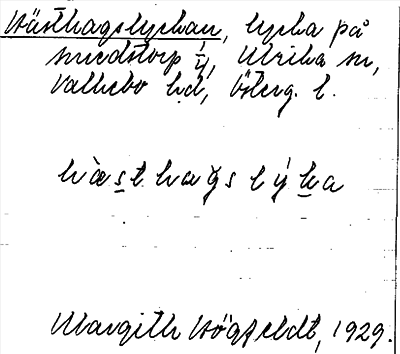 Hästhagslyckan, lycka på
Smedstorp ⅟y, Ulrika sn,
Vallebo hd, Österg. l.
hàsthags lýka
Margith Högfeldt, 1929.